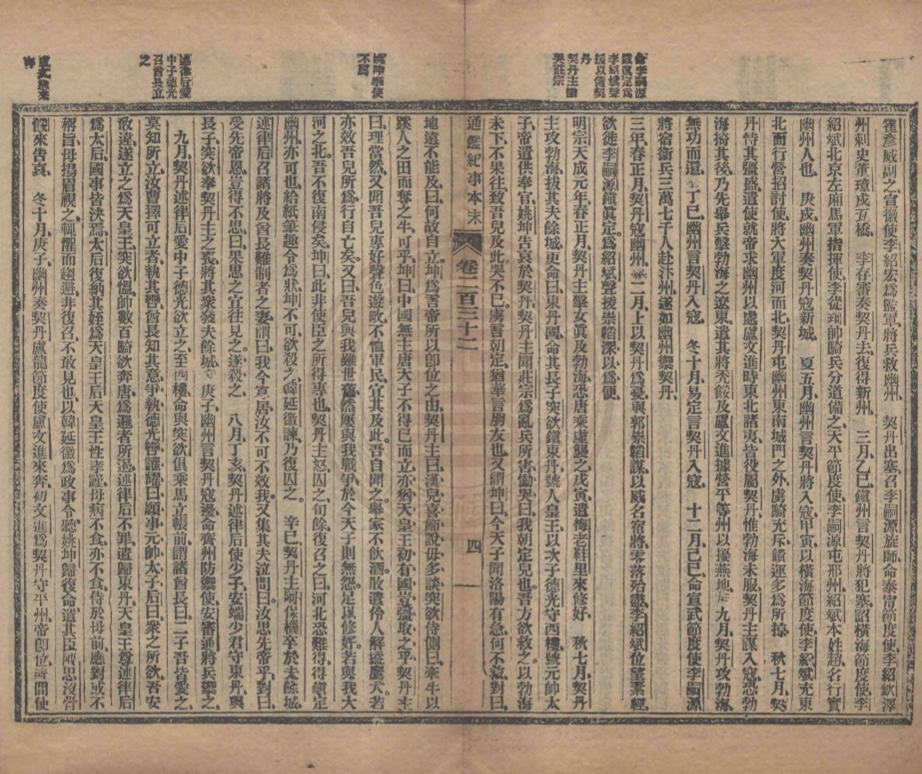 霍彥威副之宣徽使李紹宏爲監軍將兵救幽州　契丹出塞召李嗣源旋師命泰甯節度使李紹欽澤
州刺史董璋戍瓦橋　李存審奏契丹去復得新州　三月乙巳鎮州言契丹將犯塞詔橫海節度使李
紹斌北京左廂馬軍指揮使李從珂帥騎兵分道備之天平節度使李嗣源屯邢州紹斌本姓趙名行實
幽州人也　庚戌幽州奏契丹寇新城　夏五月幽州言契丹將入寇甲寅以橫海節度使李紹斌充東
北面行營招討使將大軍度河而北契丹屯幽州東南城門之外虜騎充斥饋運多爲所掠　秋七月契
丹恃其彊盛遣使就帝求幽州以處盧文進時東北諸夷皆役屬契丹惟勃海未服契丹主謀入寇恐勃
海掎其後乃先舉兵擊勃海之遼東遣其將禿餒及盧文進據營平等州以擾燕地　九月契丹攻勃海
無功而還　丁巳幽州言契丹入寇　冬十月易定言契丹入寇　十二月己巳命宣武節度使李嗣源
將宿衛兵三萬七千人赴汴州遂如幽州禦契丹
三年春正月契丹寇幽州　二月上以契丹爲憂與郭崇韜謀以威名宿將零落殆盡李紹斌位望素輕
欲徙李嗣源鎮眞定爲紹斌聲援崇韜深以爲便
明宗天成元年春正月契丹主擊女眞及勃海恐唐乘虛襲之戊寅遣梅老鞋里來修好　秋七月契丹
主攻勃海拔其夫餘城更命曰東丹國命其長子突欲鎮東丹號人皇王以次子德光守西樓號元帥太
子帝遣供奉官姚坤告哀於契丹契丹主聞莊宗爲亂兵所害慟哭曰我朝定兒也吾方欲救之以勃海
未下不果往致吾兒及此哭不已虜言朝定猶華言朋友也又謂坤曰今天子聞洛陽有急何不救對曰
通鑑紀事本末　卷二百三十二　四
地遠不能及曰何故自立坤爲言帝所以卽位之由契丹主曰漢兒喜飾說毋多談突欲侍側曰牽牛以
蹊人之田而奪之牛可乎坤曰中國無主唐天子不得已而立亦猶天皇王初有國豈彊取之乎契丹主
曰理當然又聞吾兒專好聲色遊畋不恤軍民宜其及此吾自聞之舉家不飲酒散遣伶人解縱鷹犬若
亦效吾兒所爲行自亡矣又曰吾兒與我雖世舊然屢與我戰爭於今天子則無怨足以修好若與我大
河之北吾不復南侵矣坤曰此非使臣之所得專也契丹主怒囚之旬餘復召之曰河北恐難得得鎮定
幽州亦可也給紙筆趣令爲狀坤不可欲殺之韓延徽諫乃復囚之　辛巳契丹主阿保機卒於夫餘城
述律后召諸將及酋長難制者之妻謂曰我今寡居汝不可不效我又集其夫泣問曰汝思先帝乎對曰
受先帝恩豈得不思曰果思之宜往見之遂殺之　八月丁亥契丹述律后使少子安端少君守東丹與
長子突欲奉契丹主之喪將其衆發夫餘城　庚子幽州言契丹寇邊命齊州防禦使安審通將兵禦之
　九月契丹述律后愛中子德光欲立之至西樓命與突欲俱乘馬立帳前謂諸酋長曰二子吾皆愛之
莫知所立汝曹擇可立者執其轡酋長知其意爭執德光轡讙躍曰願事元帥太子后曰衆之所欲吾安
敢違遂立之爲天皇王突欲慍帥數百騎欲奔唐爲邏者所遏述律后不罪遣歸東丹天皇王尊述律后
爲太后國事皆決焉太后復納其姪爲天皇王后天皇王性孝謹母病不食亦不食侍於母前應對或不
稱旨母揚眉視之輒懼而趨避非復召不敢見也以韓延徽爲政事令聽姚坤歸復命遣其臣阿思沒骨
餒來告哀　冬十月庚子幽州奏契丹盧龍節度使盧文進來奔初文進爲契丹守平州帝卽位遣間使